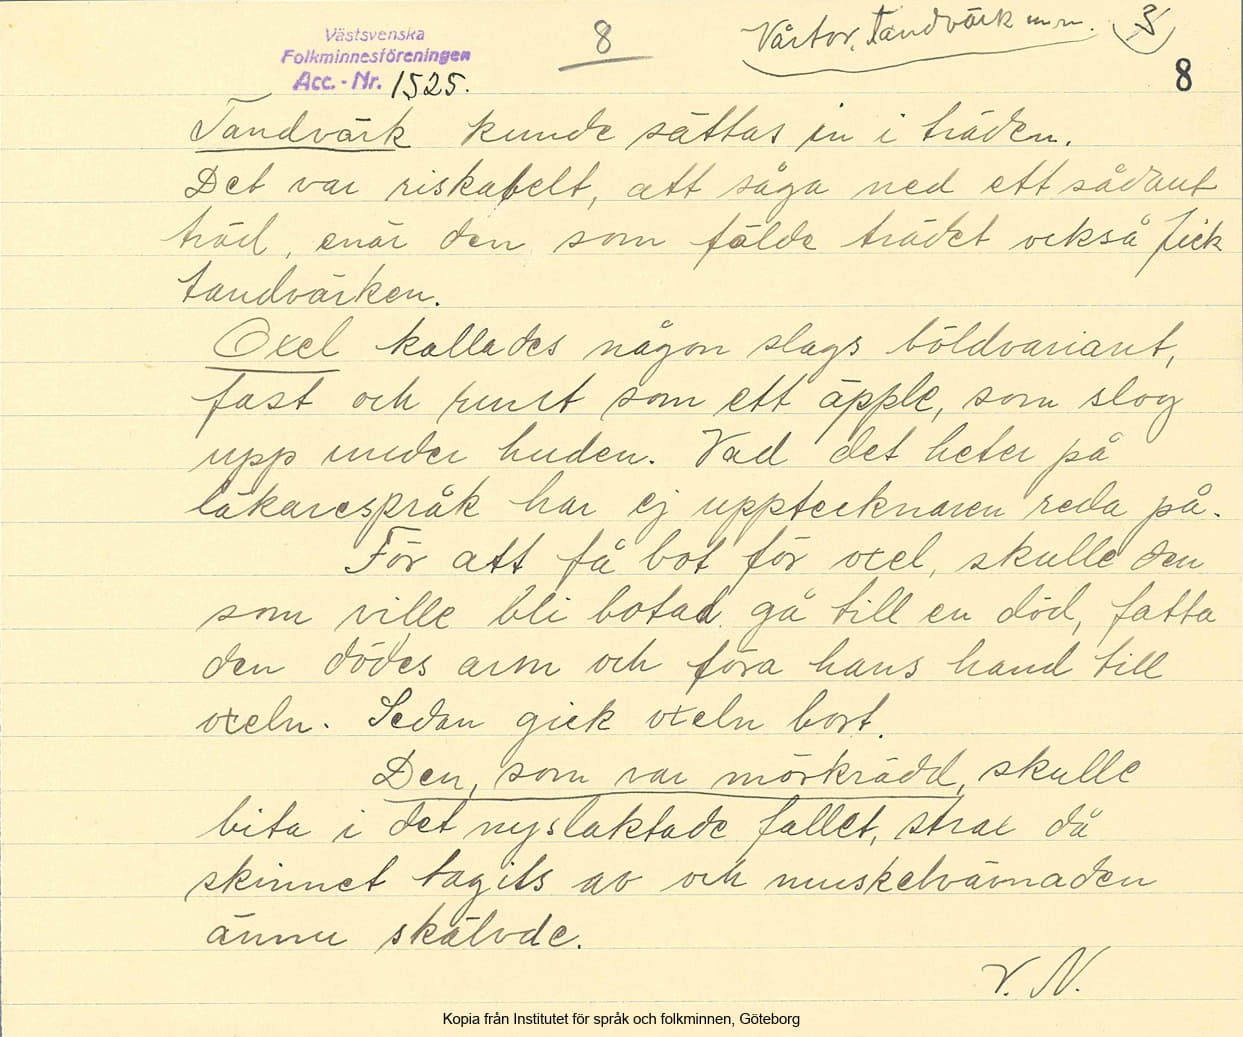 Västsvenska
Folkminnesföreningen
Acc.-Nr. 1525.
8
Vårtor, Tandvärk m.m. 3
8
Tandvärk kunde sättas in i träden.
Det var riskabelt, att såga ned ett sådant
träd, enär den som fälde trädet också fick
tandvärken.
Oxel kallades någon slags böldvariant,
fast och runt som ett äpple, som slog
upp under huden. Vad det heter på
läkarespråk har ej upptecknaren reda på.
För att få bot för oxel, skulle den
som ville bli botad gå till en död, fatta
den dödes arm och föra hans hand till
oxeln. Sedan gick oxeln bort.
Den, som var mörkrädd, skulle
bita i det nyslaktade fallet, strax då
skinnet tagits av och muskelvävnaden
ännu skälvde.
V. N.
Kopia från Institutet för språk och folkminnen, Göteborg